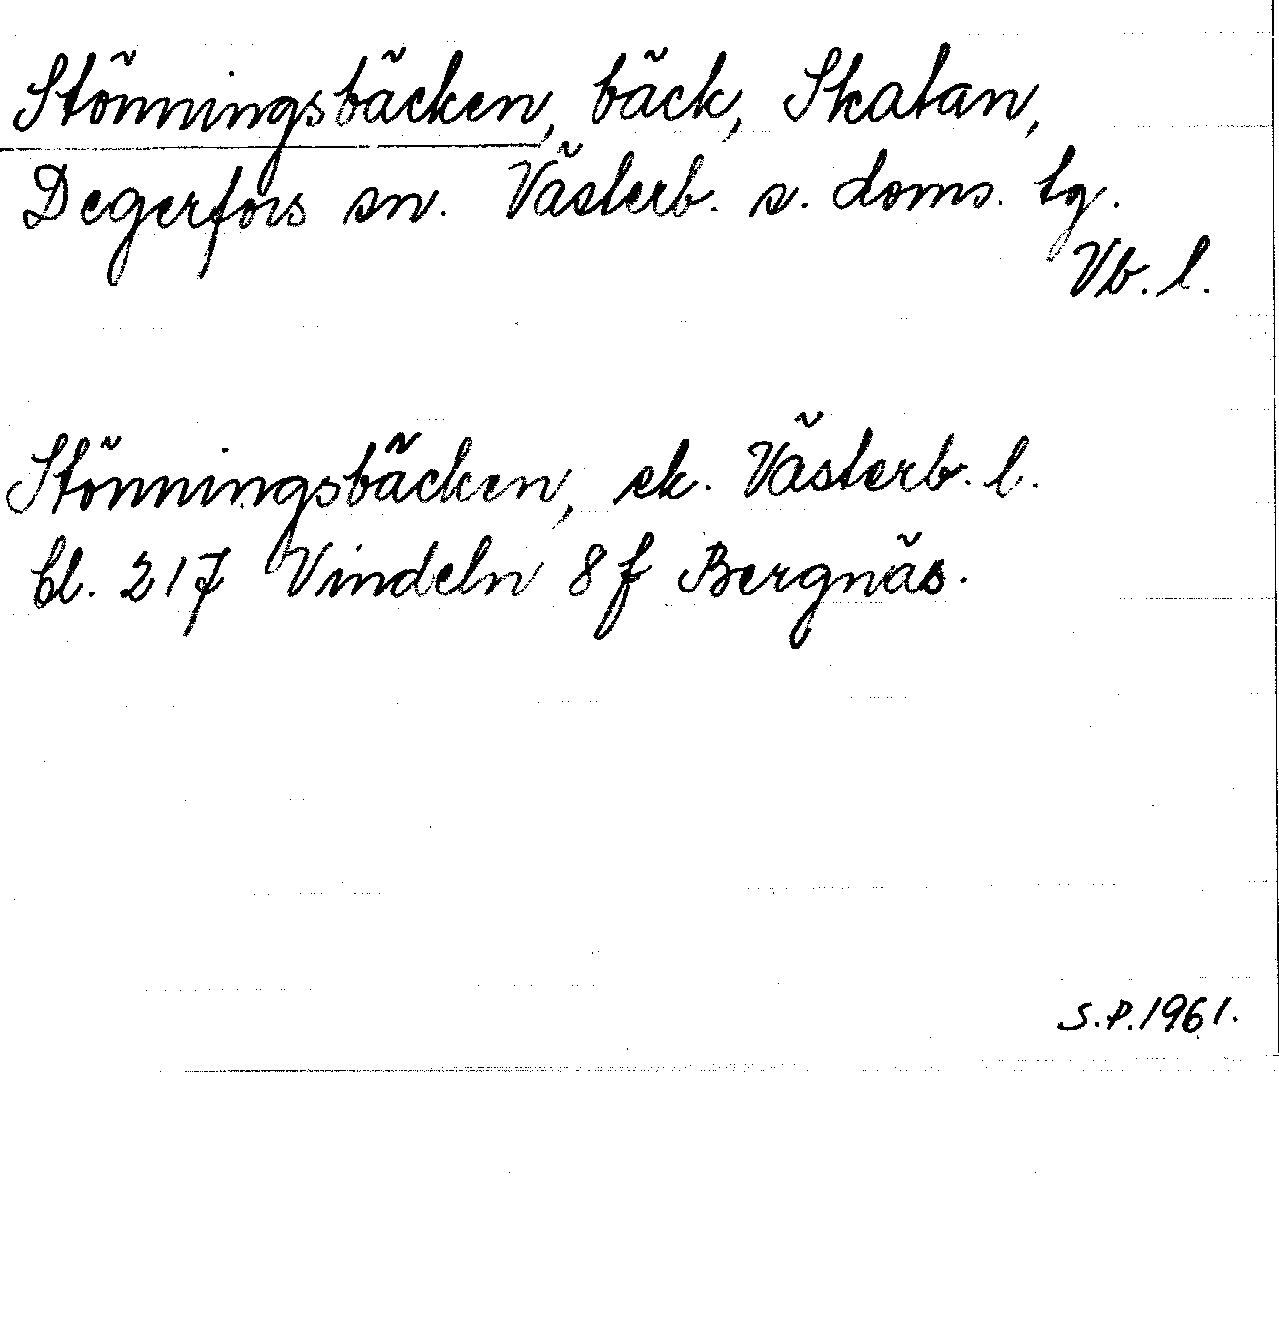 Stönningsbäcken, bäck, Skatan,
Degerfors sn. Västerb. s. doms. tg.
Vb. l.
Stönningsbäcken, ek. Västerb. l.
bl. 217 Vindeln 8f Bergnäs.
S.P. 1961.